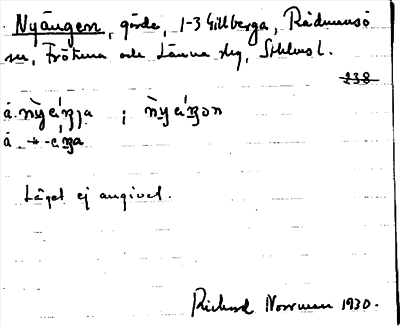 Nyängen, gärde, 1-3 Gillberga, Rådmansö
sn, Frötuna och Länna skg, Sthlms l.
238
å. nỳéŋja ; ǹyéŋon
å -+- éŋa
Läget ej angivet.
Richard Norrman 1930.